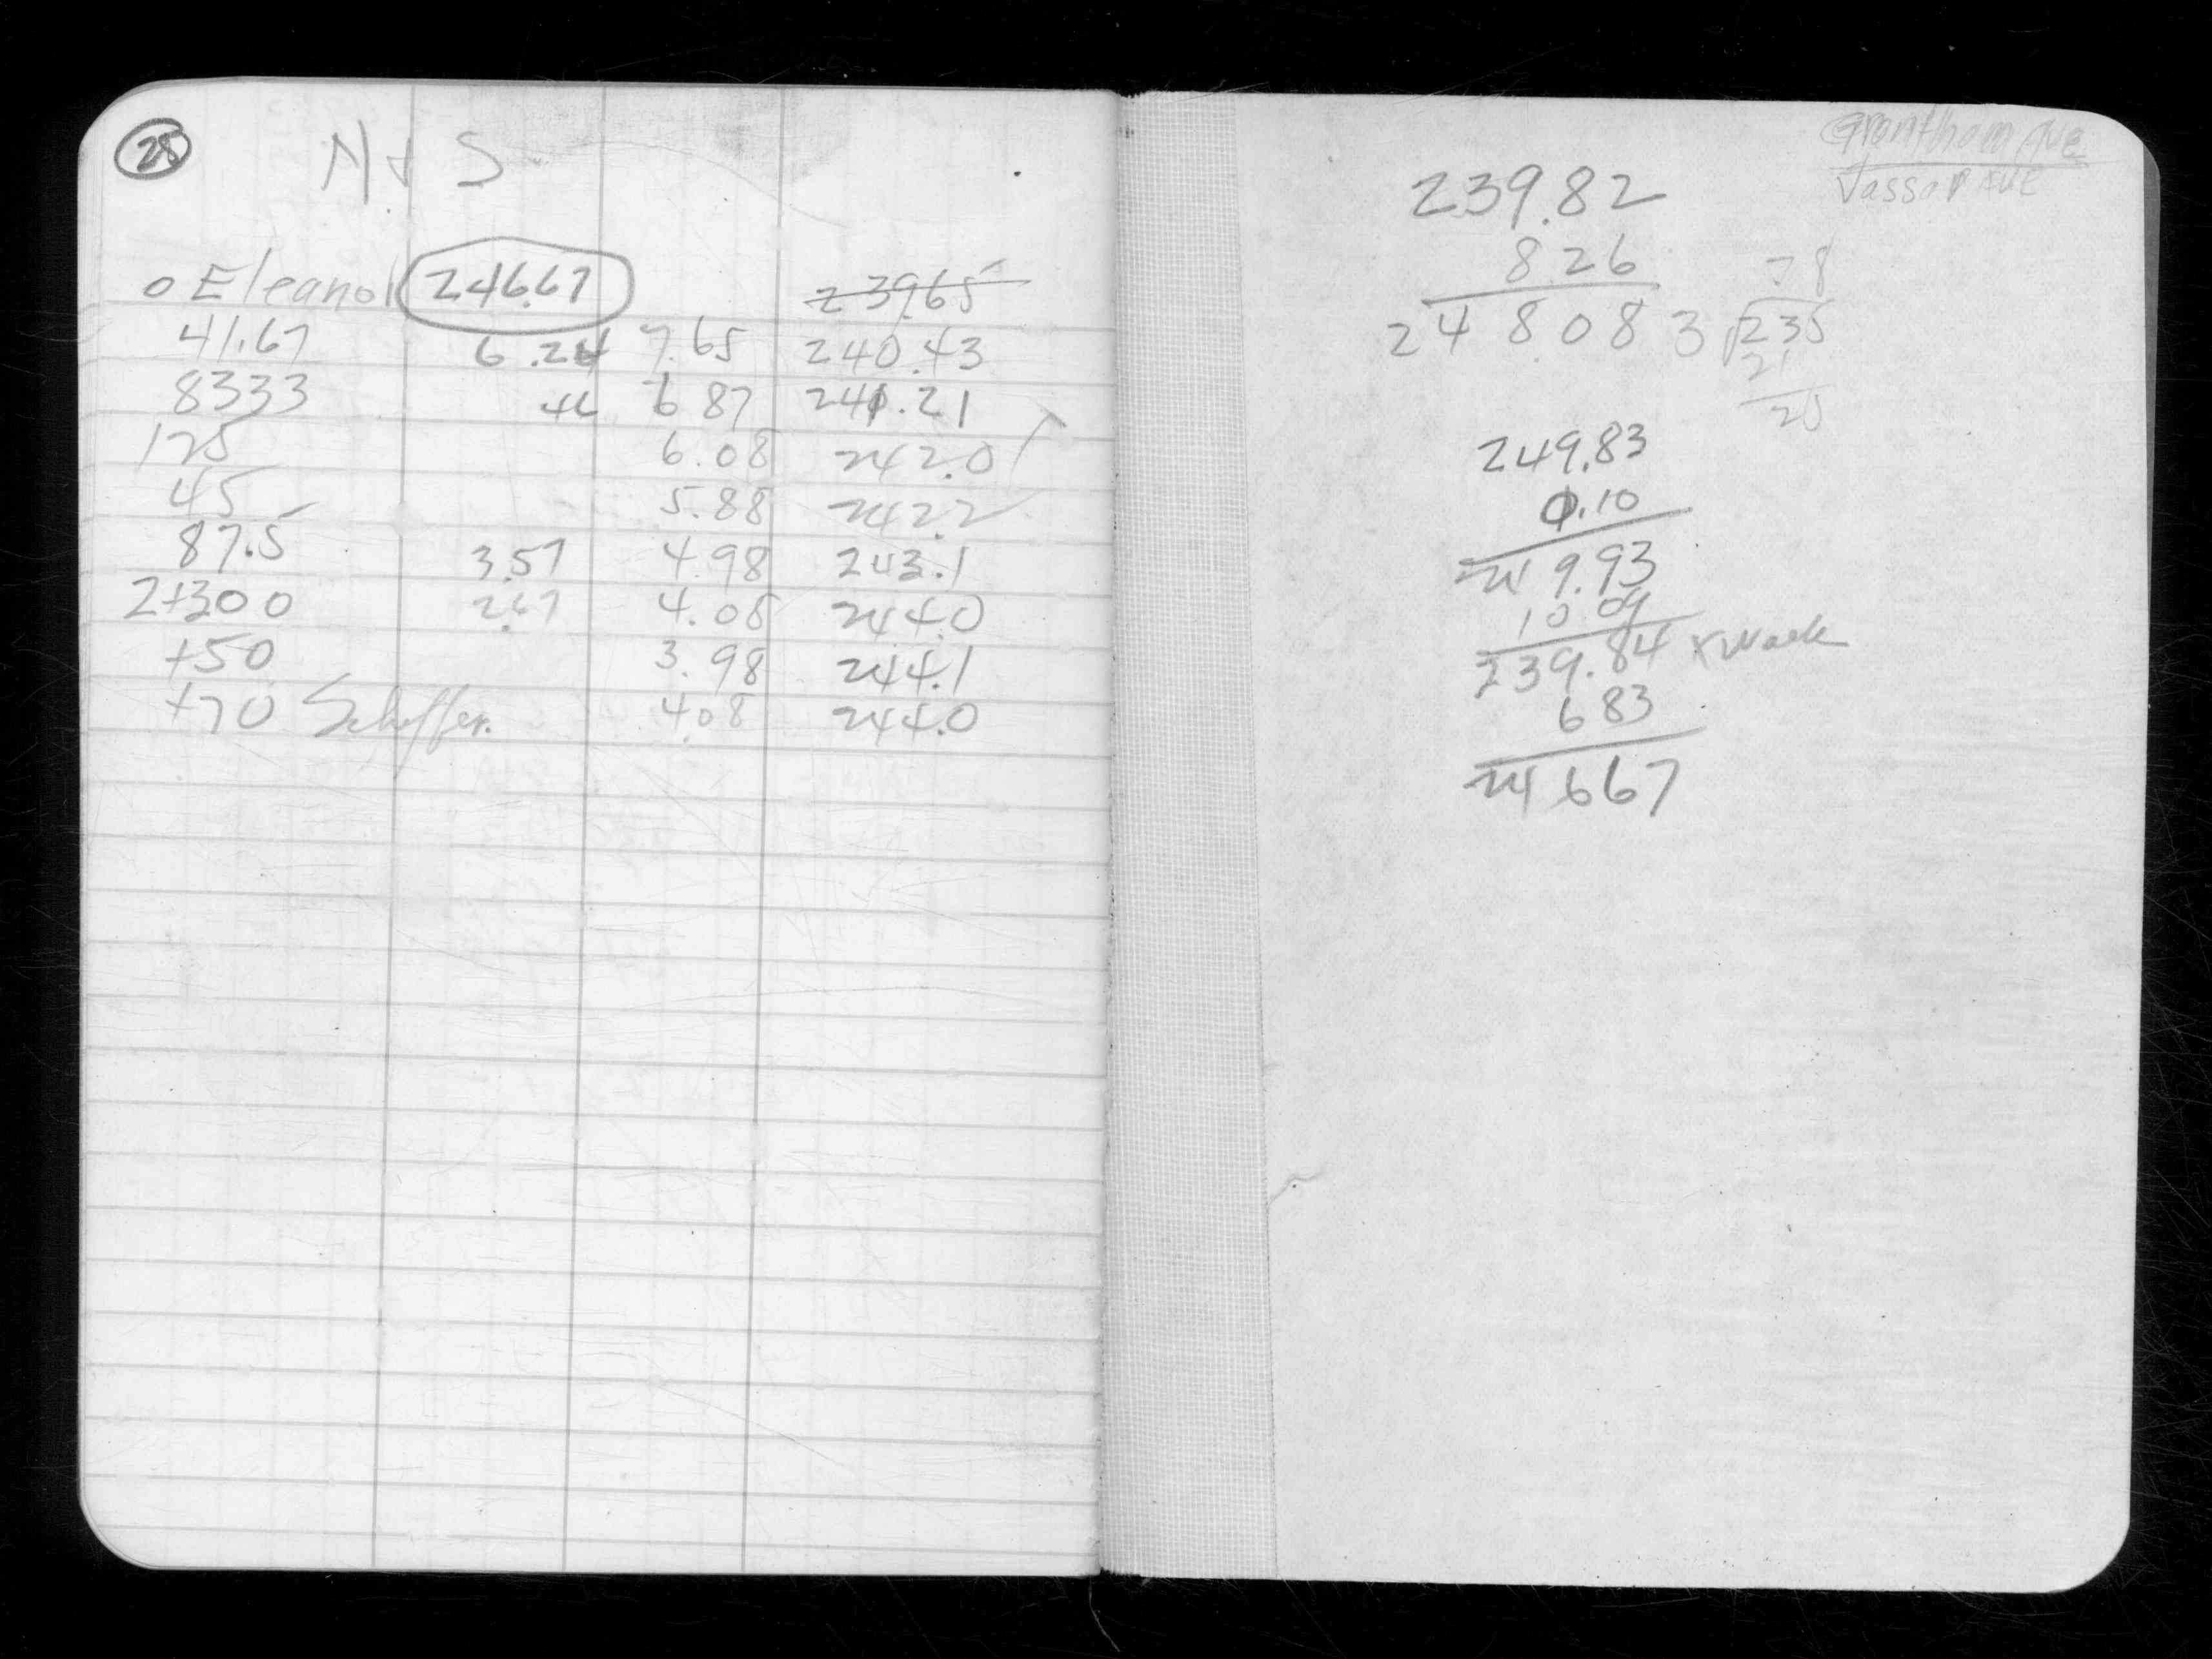 28
N + S
0 Eleanor 246.67 239.65
41.67 6.24 7.65 240.43
8333 +L 6 87 241.21
125 6.08 242.0
45 5.88 242.2
87.5 3.57 4.98 243.1
2+300 2.67 4.08 244.0
+50 3.98 244.1
+70 4.08 244.0
Grantham Ave
Vassar Ave
239.82
8.26
24 8.08
78
3 235
21
25
249.83
0.10
249.93
10.09
239.84
6 83
24667